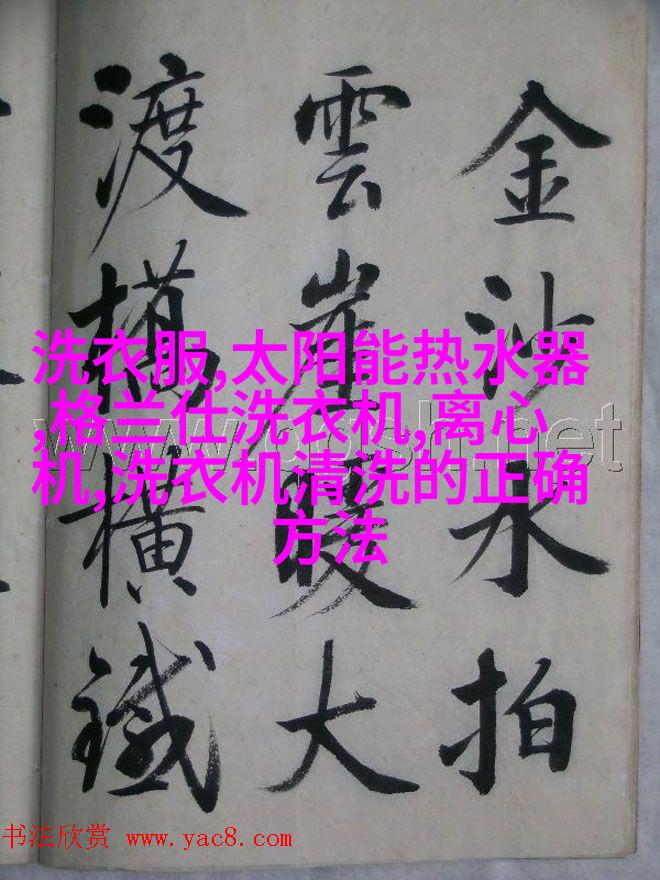 金沙水拍
雲崖暖大
渡橋橫鐵
洗衣服,太阳能热水器
,格兰仕洗衣机,离心
机,洗衣机清洗的正确
方法
书法欣赏 www.yac8.com